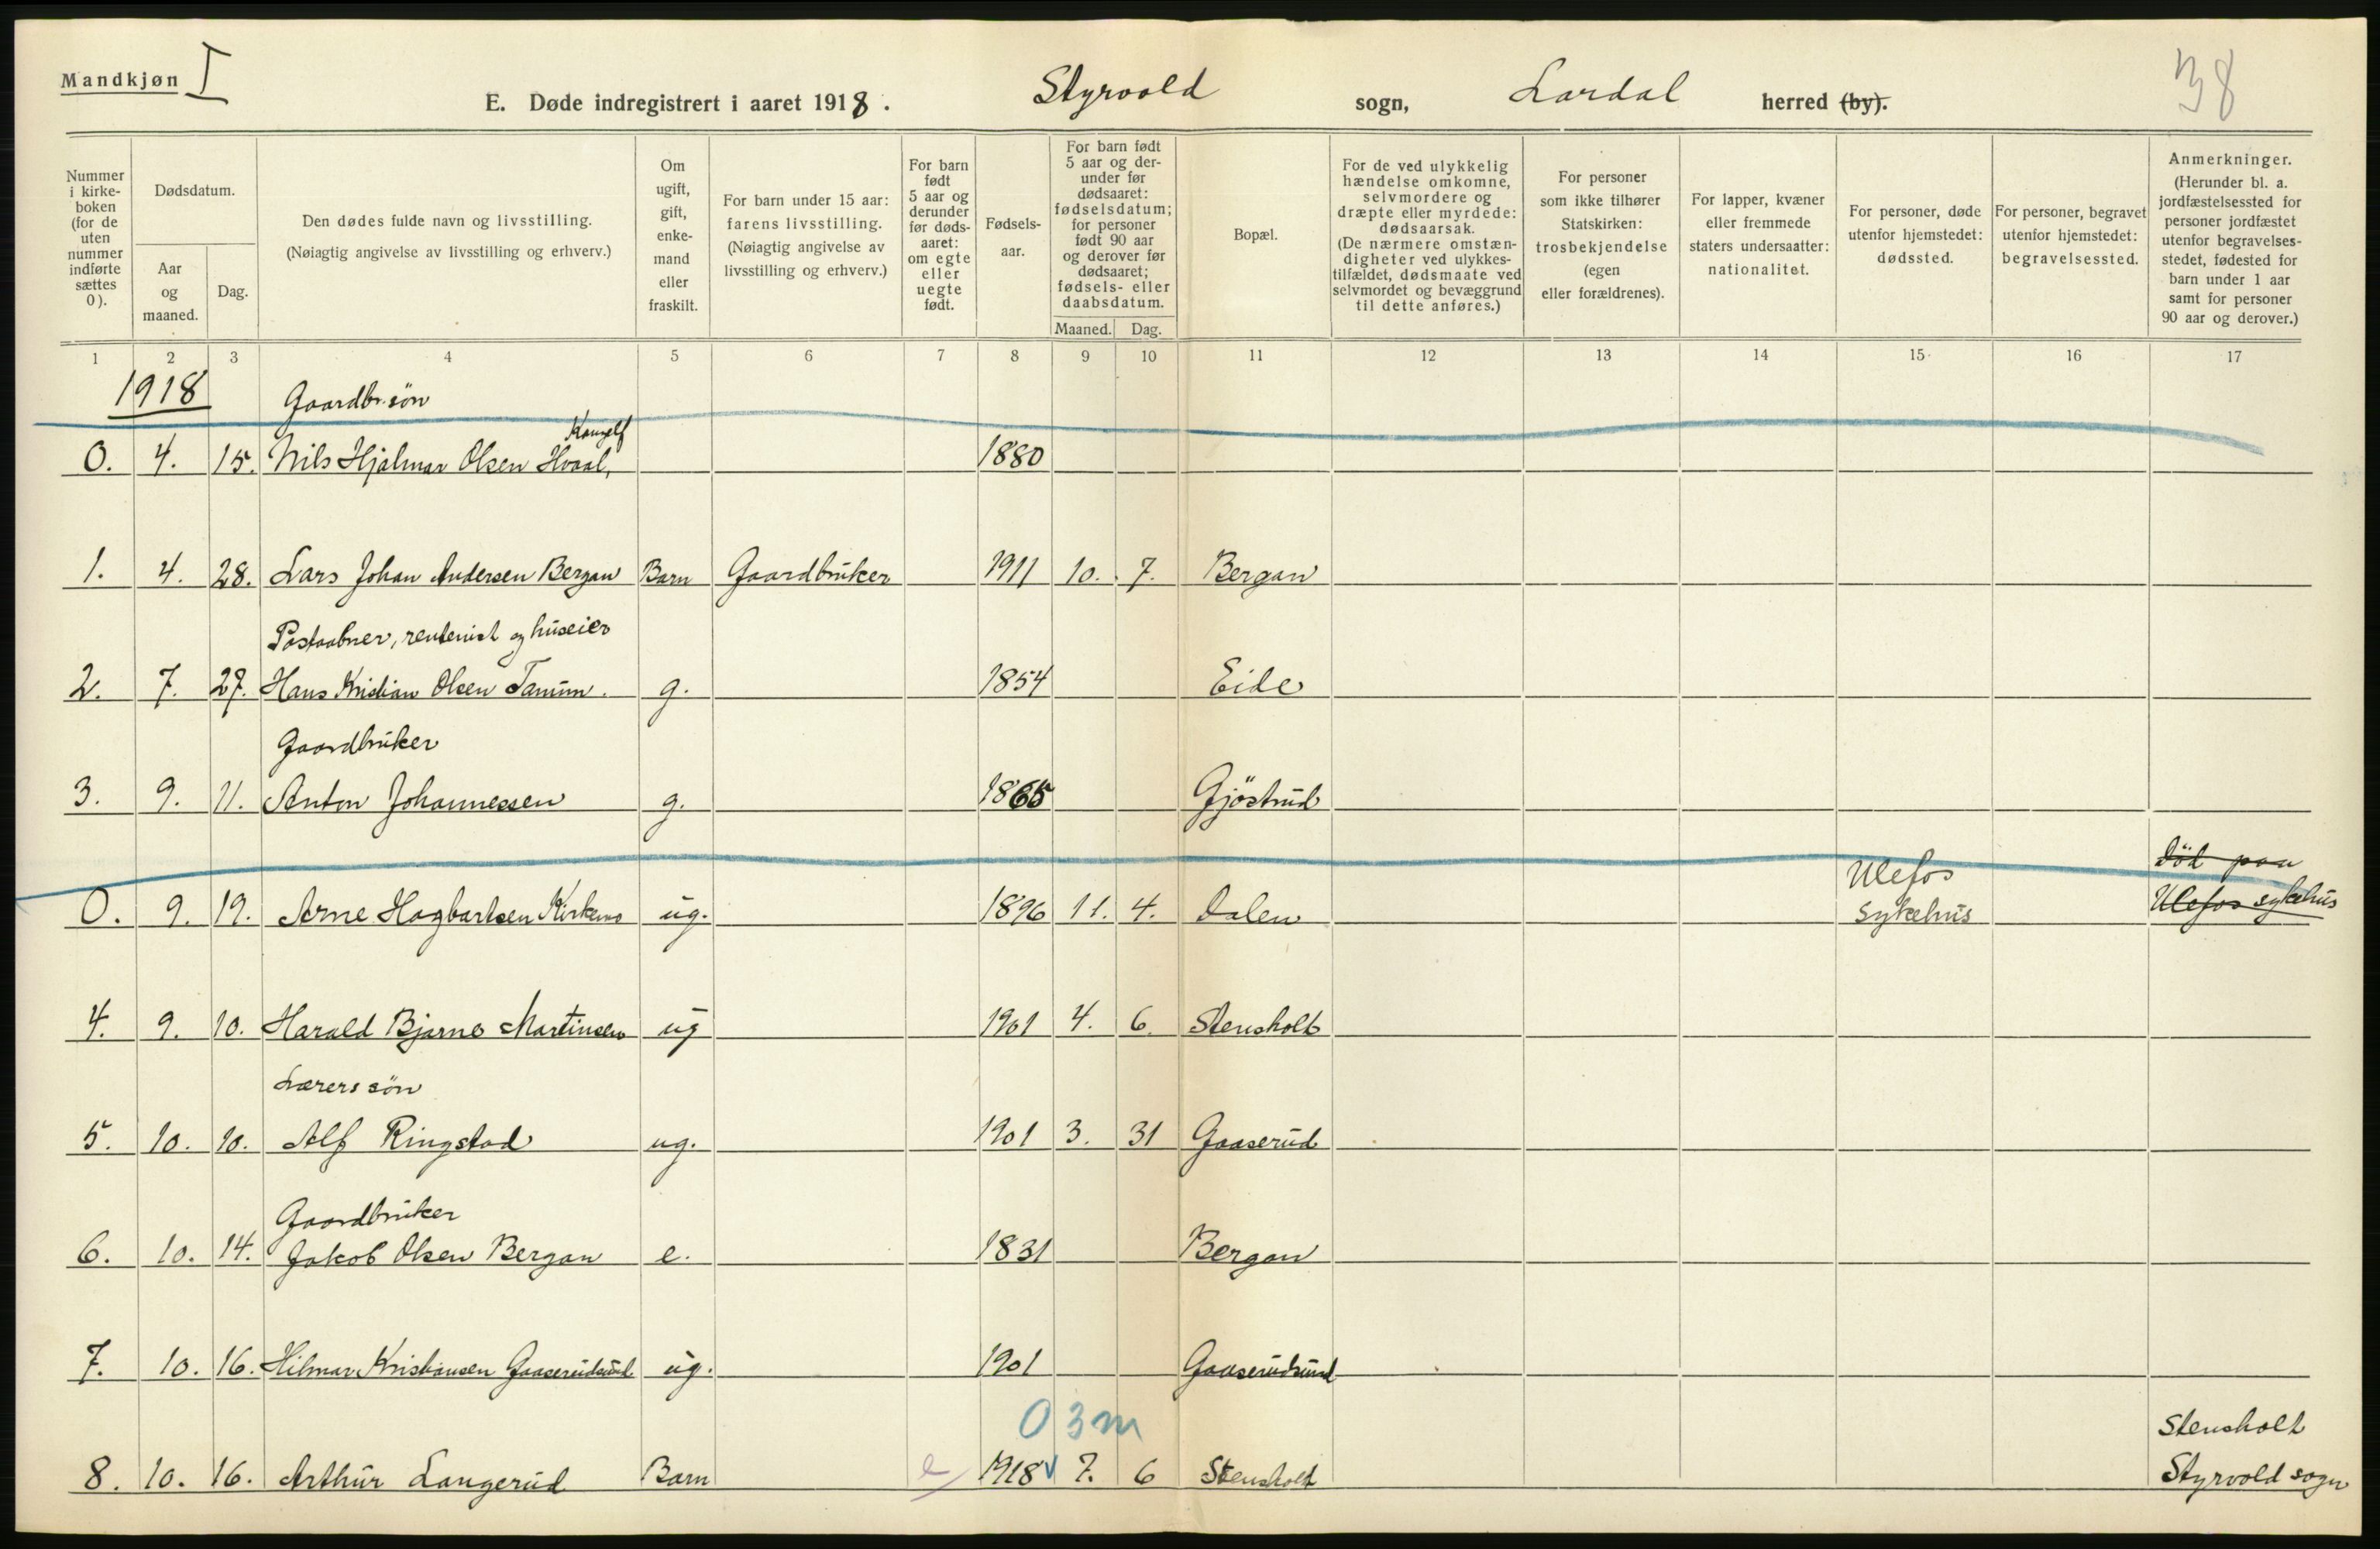 Mandkjøn I
38
E. Døde indregistrert i aaret 1918. Styrvold sogn, Lardal herred (by).
Nummer i kirke-boken (for de uten nummer indførte sættes 0).
Dødsdatum.
Aar og maaned.
Dag.
Den dødes fulde navn og livsstilling.
(Nøiagtig angivelse av livsstilling og erhverv.)
Om ugift, gift, enke-mand eller fraskilt.
For barn under 15 aar: farens livsstilling.
(Nøiagtig angivelse av livsstilling og erhverv.)
For barn født 5 aar og derunder før døds-aaret: om egte eller uegte født.
Fødsels-aar.
For barn født 5 aar og der-under før dødsaaret: fødselsdatum; for personer født 90 aar og derover før dødsaaret; fødsels- eller daabsdatum.
Maaned. Dag.
Bopæl.
For de ved ulykkelig hændelse omkomne, selvmordere og dræpte eller myrdede: dødsaarsak.
(De nærmere omstæn-digheter ved ulykkes-tilfældet, dødsmaate ved selvmordet og bevæggrund til dette anføres.)
For personer som ikke tilhører Statskirken: trosbekjendelse (egen eller forældrenes).
For lapper, kvæner eller fremmede staters undersaatter: nationalitet.
For personer, døde utenfor hjemstedet: dødssted.
For personer, begravet utenfor hjemstedet: begravelsessted.
Anmerkninger.
(Herunder bl. a. jordfæstelsessted for personer jordfæstet utenfor begravelses-stedet, fødested for barn under 1 aar samt for personer 90 aar og derover.)
1 2 3 4 5 6 7 8 9 10 11 12 13 14 15 16 17
1918
Gaardbr.søn
0. 4. 15. Nils Hjalmar Olsen Hvaal, 1880
1. 4. 28. Lars Johan Andersen Bergan Barn Gaardbruker 1911 10. 7. Bergan
Postaabner, rentenist og huseier
2. 7. 27. Hans Kristian Olsen Tanum. g. 1854 Eide
Gaardbruker
3. 9. 11. Anton Johannessen g. 1865 Gjöstrud
Död paa
0. 9. 19. Arne Hagbartsen Kirkemo ug. 1896 11. 4. Dalen Ulefos sykehus Ulefos sykehus
4. 9. 10. Harald Bjarne Martinsen ug 1901 4. 6. Stensholt
Lærers søn
5. 10. 10. Alf Ringstad ug. 1901 3. 31 Gaaserud
Gaardbruker
6. 10. 14. Jakob Olsen Bergan e. 1831 Bergan
7. 10. 16. Hilmar Kristiansen Gaaserudsund ug. 1901 Gaaserudsund
0 3 m
Stensholt
8. 10. 16. Arthur Langerud Barn e 1918 7. 6 Stensholt Styrvold sogn